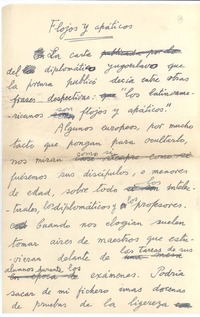 Flojos y apáticos
La carta
del diplomático yugoeslavo que
la prensa publicó decía entre otras
frases despectivas: "los latinoame-
ricanos son flojos y apáticos".
Algunos europeos, por mucho
tacto que pongan para ocultarlo,
nos miran como si
fuésemos sus discípulos, o menores
de edad, sobre todo los intelec-
tuales, los diplomáticos y los profesores.
Cuando nos elogian suelen
tomar aires de maestros que estu-
vieran delante de las tareas de sus
alumnos durante los
exámenes. Podría
sacar de mi fichero unas docenas
de pruebas de la ligereza